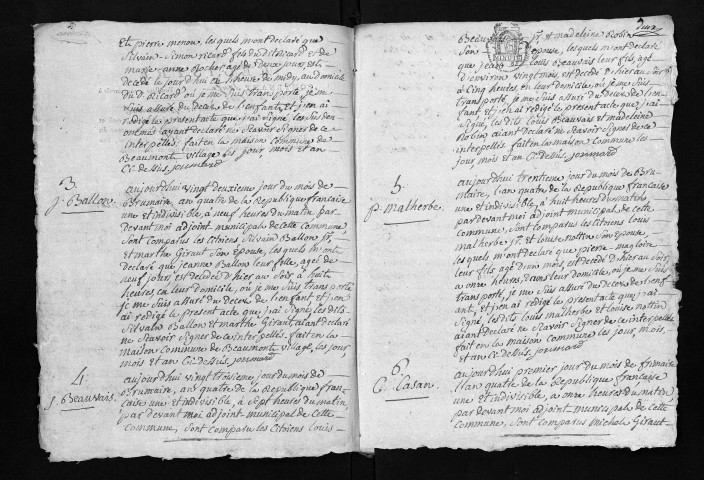 2
Et pierre menou, lesquels m'ont declaré que
Silvain Simon ricard fils du dit Ricard et de
marie-anne Rocher agé de deux jours, est
decedé le jourd'hui en l'heure de midy, au domicile
du d. Ricard où je me suis transporté je me
suis assuré du deces de l'enfant et j'en ai
rédigé le present acte que j'ai signé, les susden
ommés ayant declaré ne sçavoir signer de ce
interpellés, fait en la maison commune de
Beaumont village les jour, mois et an
Ci-dessus, joumard
3.
j. Ballon.
aujourdhui vingt deuxieme jour du mois de
Brumaire, an quatre de la République francaise
une et indivisible, à neuf heures du matin par
devant moi adjoint municipal de cette Commune,
Sont Comparus les Citoiens Silvain Ballon jr.
et marthe Giraut Son Epouse, lesquels m'ont
declaré que jeanne Ballon leur fille, agée de
neuf jours est decedée d'hier au soir à huit
heures, en leur domicile, où je me suis transporté
je me suis assuré du deces de l'enfant et j'en
ai rédigé le present acte que j'ai signé, les dits
Silvain Ballon et marthe Giraut aiant declaré
ne sçavoir signer de ce interpellés, fait en la
maison Commune de Beaumont village, les jour,
mois et an Ci-dessus, joumard
4.
j. Beauvais.
aujourdhui vingt troisieme jour du mois de
Brumaire, an quatre de la République fran-
caise une et indivisible, à sept heures du matin
par devant moi adjoint municipal de cette
Commune, Sont Comparus les Citoiens Louis
deux
Beauvais jr. et madeleine Robin
Son Epouse, lesquels m'ont declaré
que jean Louis Beauvais leur fils, agé
d'environ vingt mois est decedé d'hier au soir
à Cinq heures, en leur domicile, où je me suis
transporté, je me suis assuré du deces de l'en-
fant, et j'en ai rédigé le present acte que j'ai
signé, les dits Louis Beauvais et madeleine
Robin aiant declaré ne sçavoir signer de ce
interpellés fait en la maison Commune les
jour mois et an Ci-dessus, joumard
5.
p. Malherbe.
aujourdhui trentieme jour du mois de Bru-
maire, l'an quatre de la République francaise
une et indivisible, à huit heures du matin
par devant moi adjoint municipal de cette
Commune, Sont Comparus les Citoiens Louis
malherbe jr. et Louise nottin Son Epouse,
lesquels m'ont declaré que pierre magloire
leur fils agé d'un mois est decedé d'hier au soir,
à onze heures, dans leur domicile, où je me suis
transporté, je me suis assuré du deces de l'enf-
ant, et j'en ai rédigé le present acte que j'ai
signé, les dits Louis malherbe et Louise nottin
aiant declaré ne sçavoir signer de ce interpellés
fait en la maison Commune les jour, mois,
et an Ci-dessus, joumard
6.
C. Casan.
aujourdhui premier jour du mois de frimaire
l'an quatre de la République francaise
une et indivisible, à onze heures du matin
par devant moi adjoint municipal de cette
Commune, Sont Comparus michel Giraut